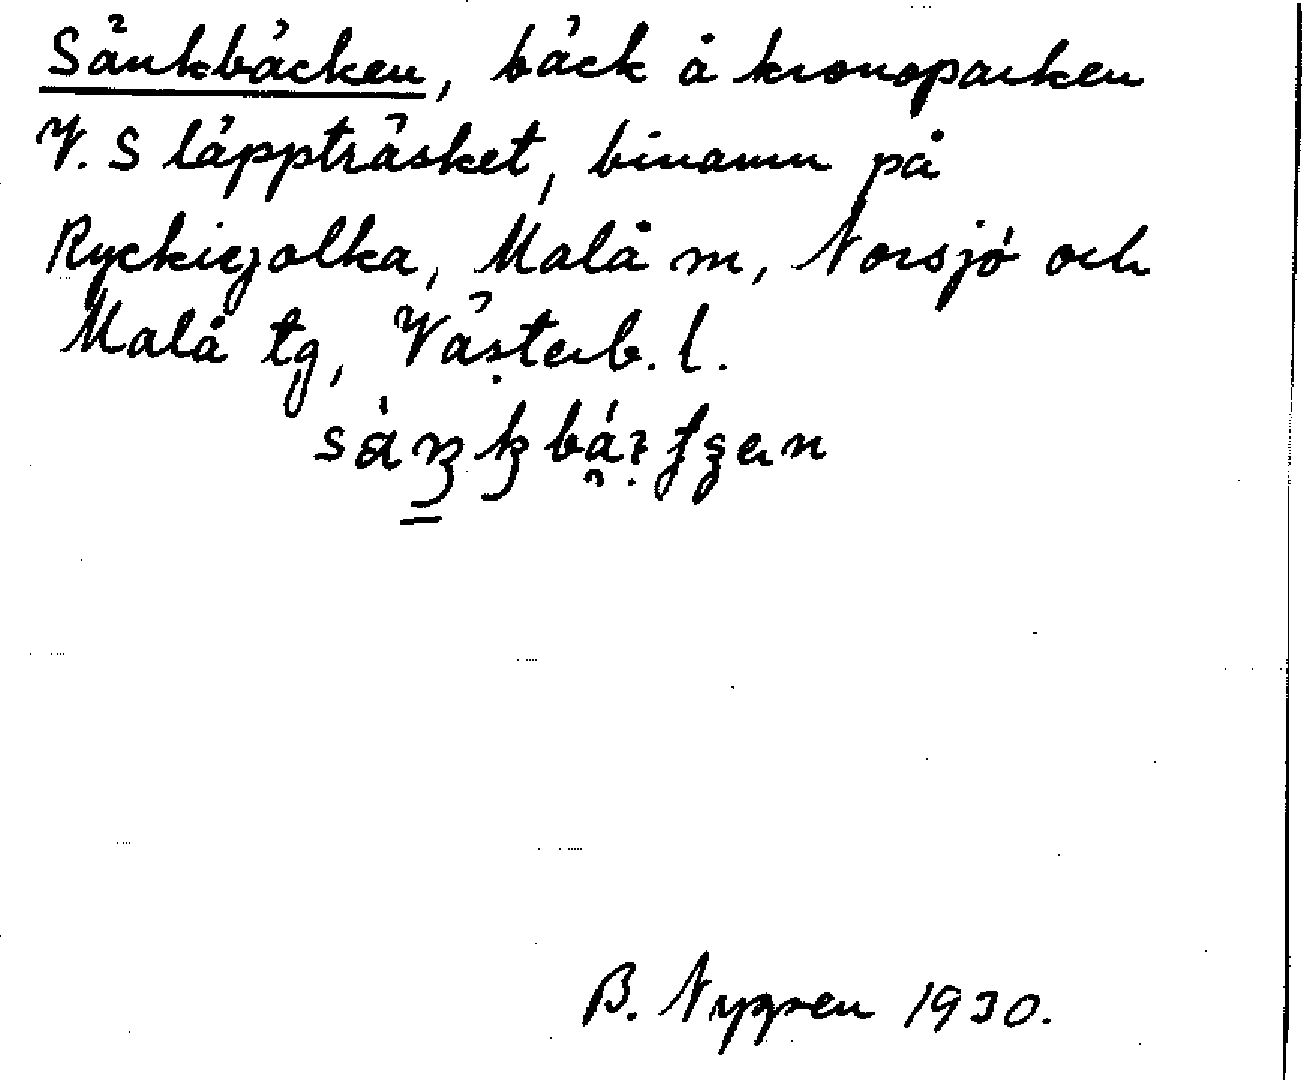 Sänkbäcken, bäck å kronoparken
V. Släppträsket, binamn på
Ryckiejolka, Malå m, Norsjö och
Malå tg, Västerb. l.
B. Nygren 1930.